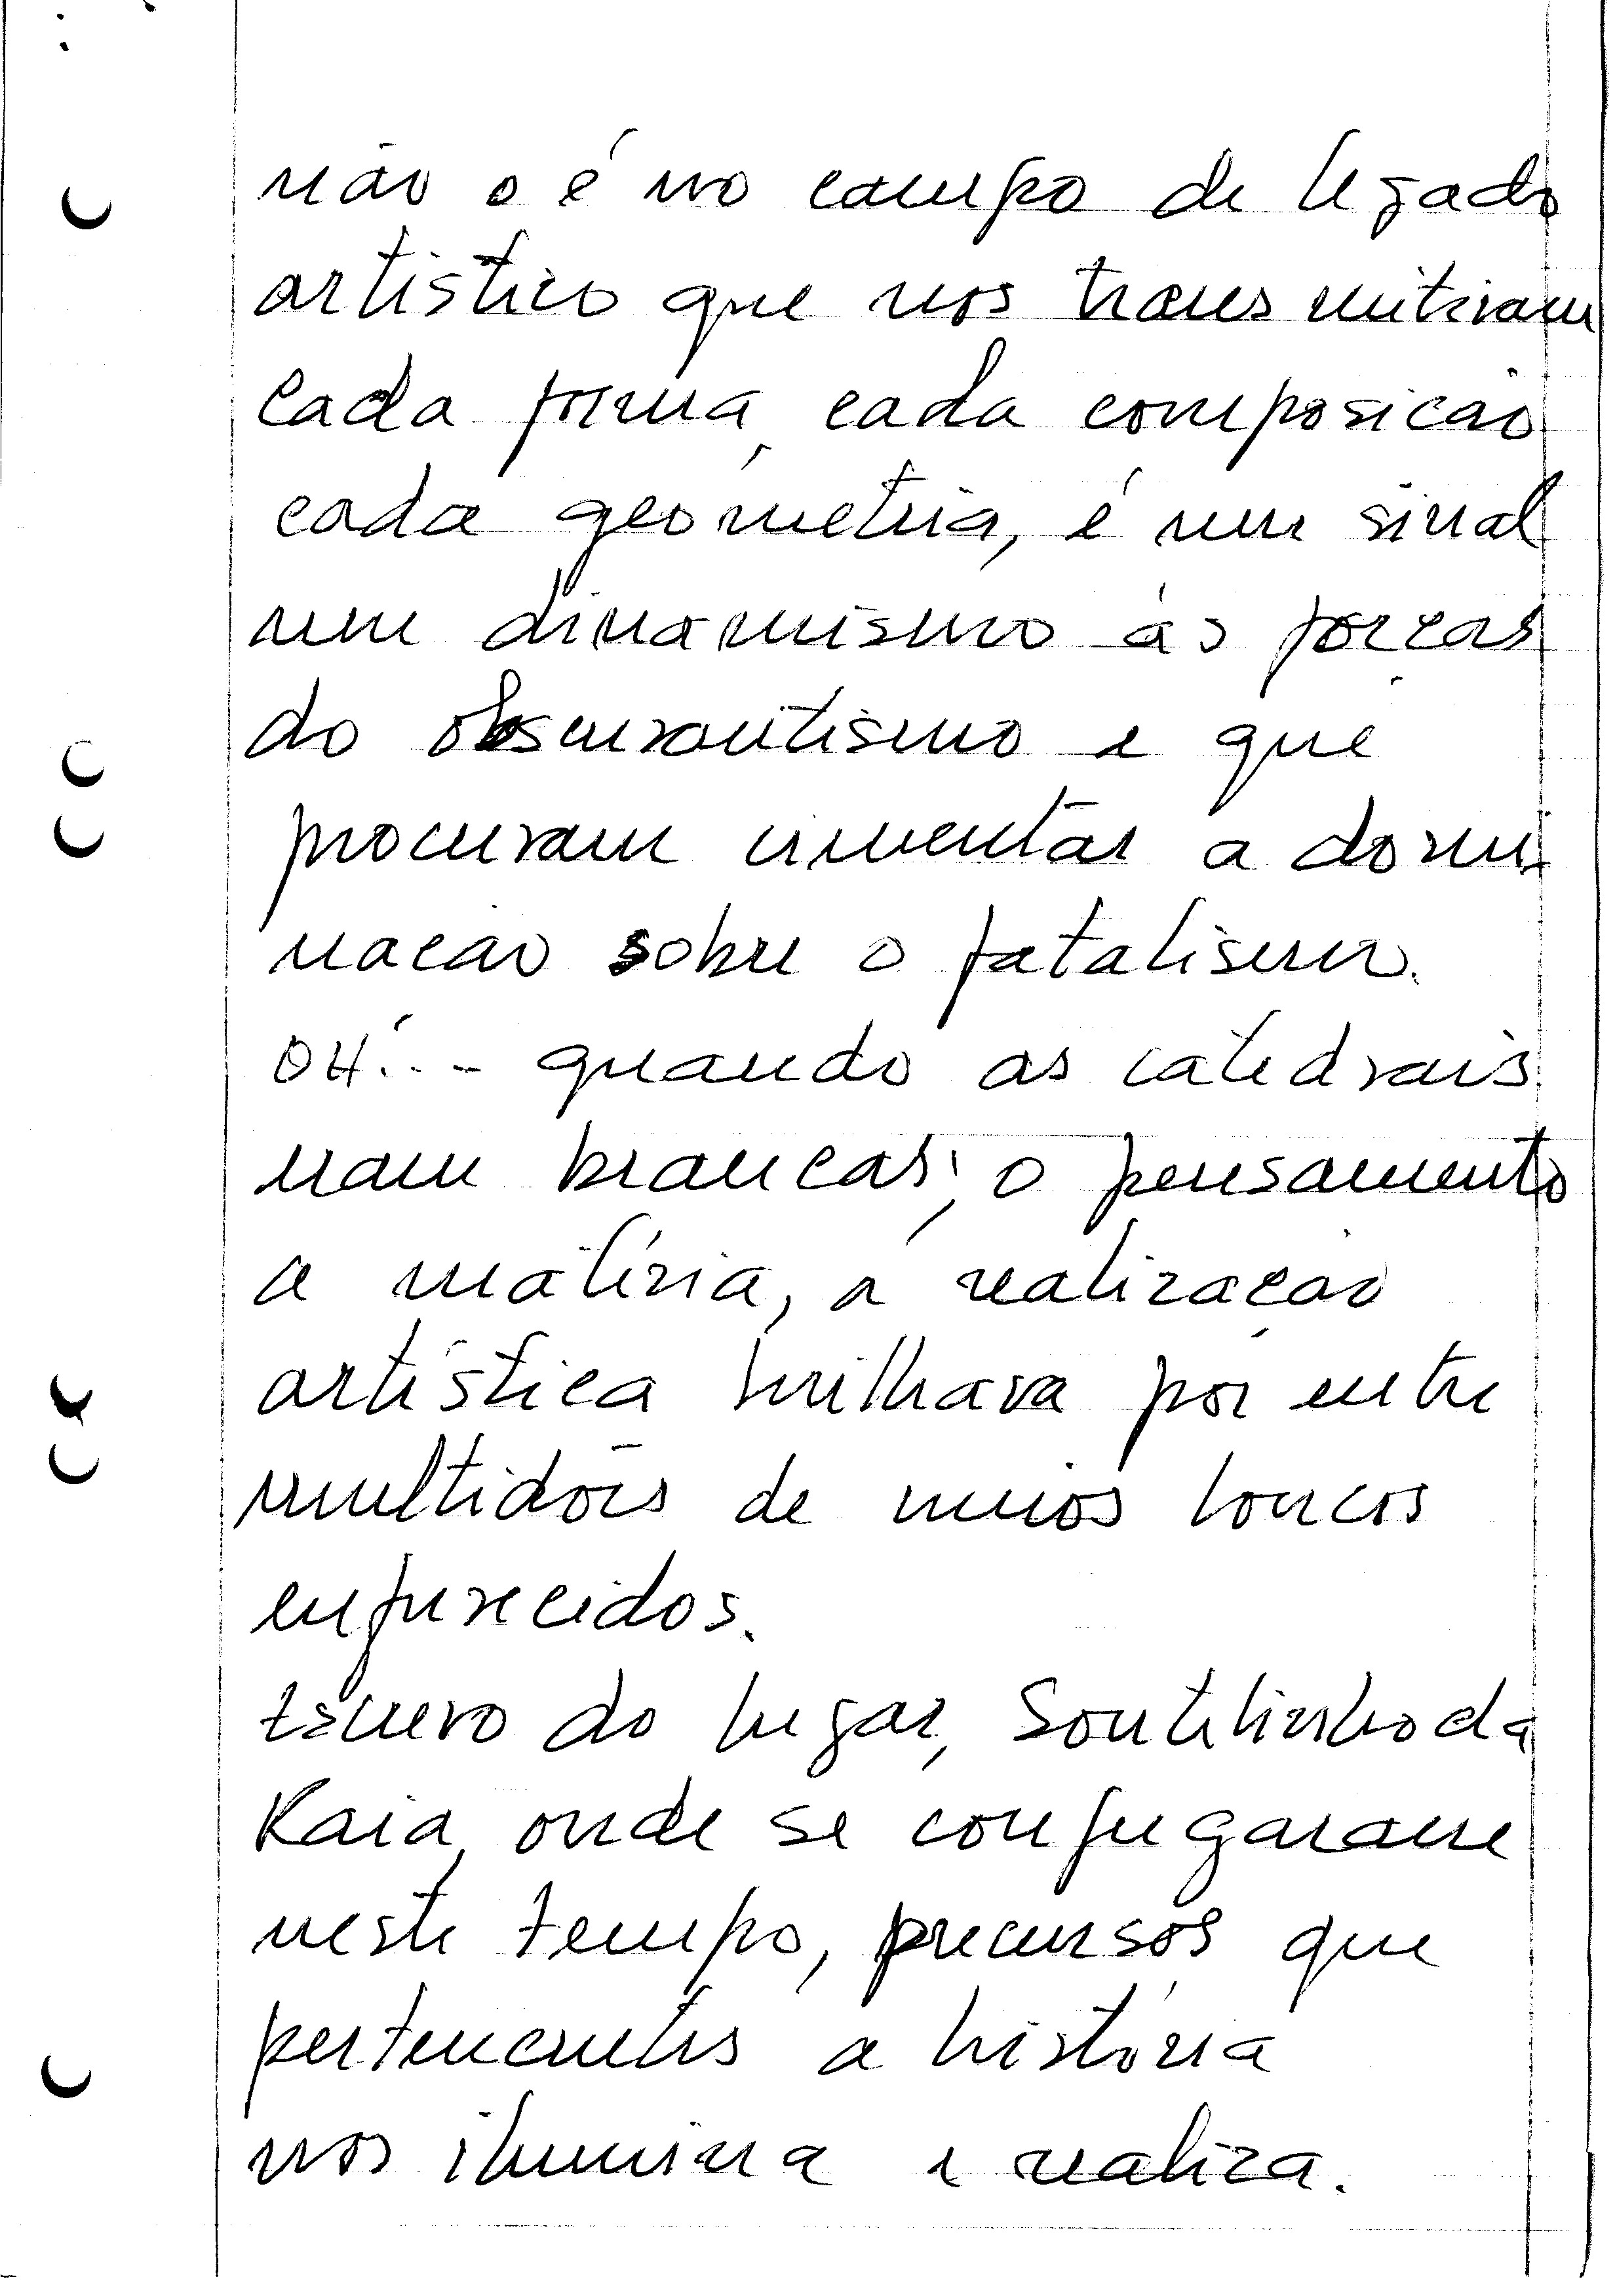 não o é no campo de legado
artístico que nos transmitiram
cada forma, cada composicão
cada geometria, é um sinal
um dinamismo às forças
do obscurantismo e que
procuram inventar a domi
nação sobre o fatalismo.
OH!... quando as catedrais
eram brancas; o pensamento
a matéria, a realização
artística brilhava por entre
multidões de meios loucos
enfurecidos.
Escuro do lugar, Soutelinho da
Raia, onde se conjugaram
neste tempo, precursos que
pertencentes a história
nos ilumina e realiza.